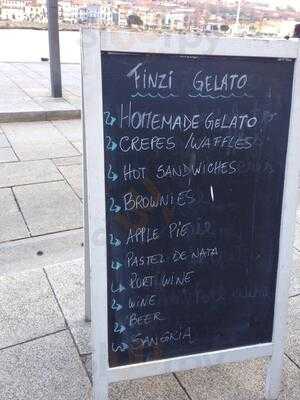 FINZI GELATO
HOMEMADE GELATO
CREPES/WAFFLES
HOT SANDWICHES
BROWNIES
APPLE PIE
PASTEL DE NATA
PORT WINE
WINE
BEER
SANGRIA